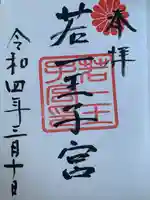 奉拝
若一王子宮
令和四年三月十日